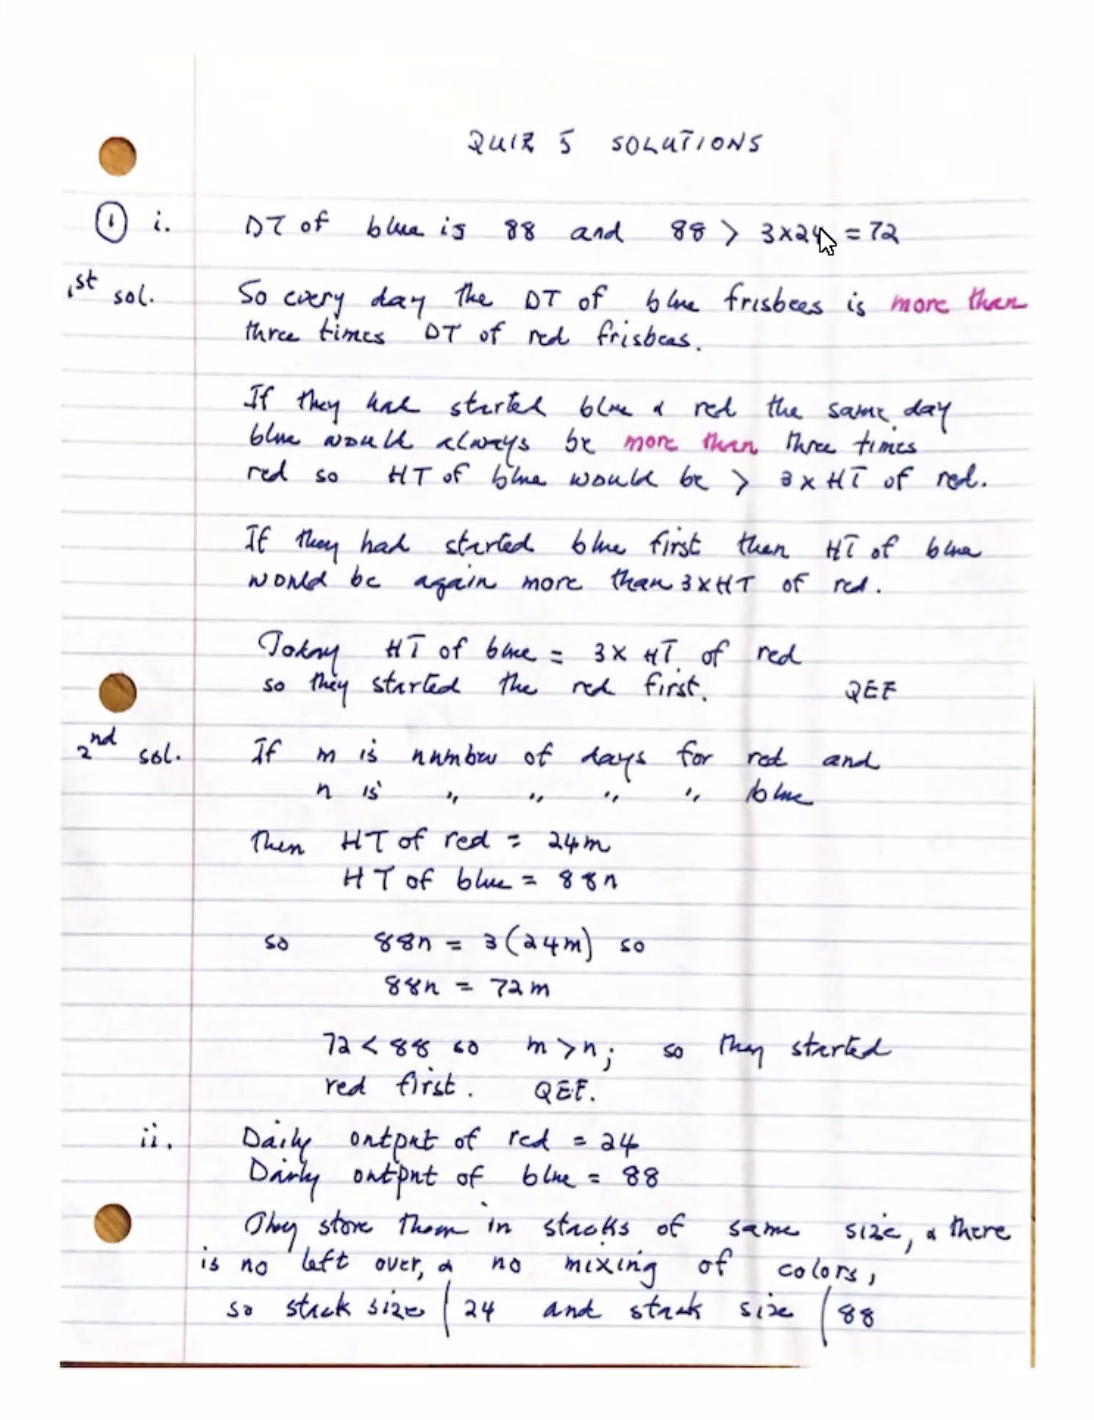 QUIZ 5 SOLUTIONS
① i. DT of blue is 88 and 88 > 3x24 = 72
1st sol. So every day the DT of blue frisbees is more than
three times DT of red frisbees.
If they had started blue & red the same day
blue would always be more than three times
red so HT of blue would be > 3 x HT of red.
If they had started blue first then HT of blue
would be again more than 3xHT of red.
Today HT of blue = 3x HT of red
so they started the red first. QEF
2nd sol. If m is number of days for red and
n is " " " " blue
Then HT of red = 24m
HT of blue = 88n
so 88n = 3(24m) so
88n = 72m
72 < 88 so m > n; so they started
red first. QEF.
ii. Daily output of red = 24
Daily output of blue = 88
They store them in stacks of same size, & there
is no left over, & no mixing of colors,
so stack size | 24 and stack size | 88